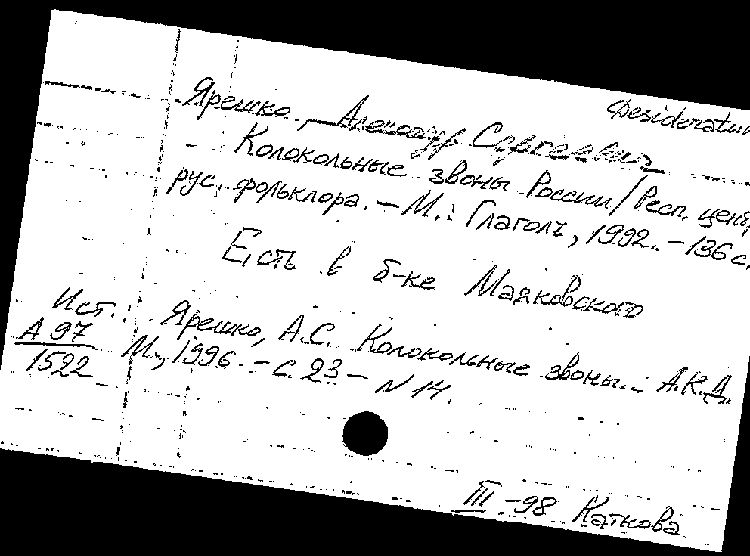 Desideratum
Ярешко, Александр Сергеевич
Колокольные звоны России / Респ. центр
рус. фольклора. – М.: Глаголъ, 1992. – 136 с.
Есть в б-ке Маяковского
Ист.: Ярешко, А.С. Колокольные звоны... А.К.Д.
А 97 М., 1996. – с. 23 – N 14.
1522
III -98 Каткова